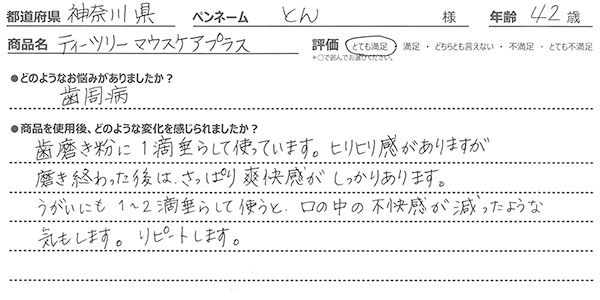 都道府県 神奈川県 ペンネーム とん 様 年齢 42 歳
商品名 ティーツリー マウスケアプラス 評価 とても満足 ・ 満足 ・ どちらとも言えない ・ 不満足 ・ とても不満足
*○で囲んでお選びください。
●どのようなお悩みがありましたか？
歯周病
●商品を使用後、どのような変化を感じられましたか？
歯磨き粉に1滴垂らして使っています。ヒリヒリ感がありますが
磨き終わった後は、さっぱり爽快感がしっかりあります。
うがいにも1〜2滴垂らして使うと、口の中の不快感が減ったような
気もします。リピートします。